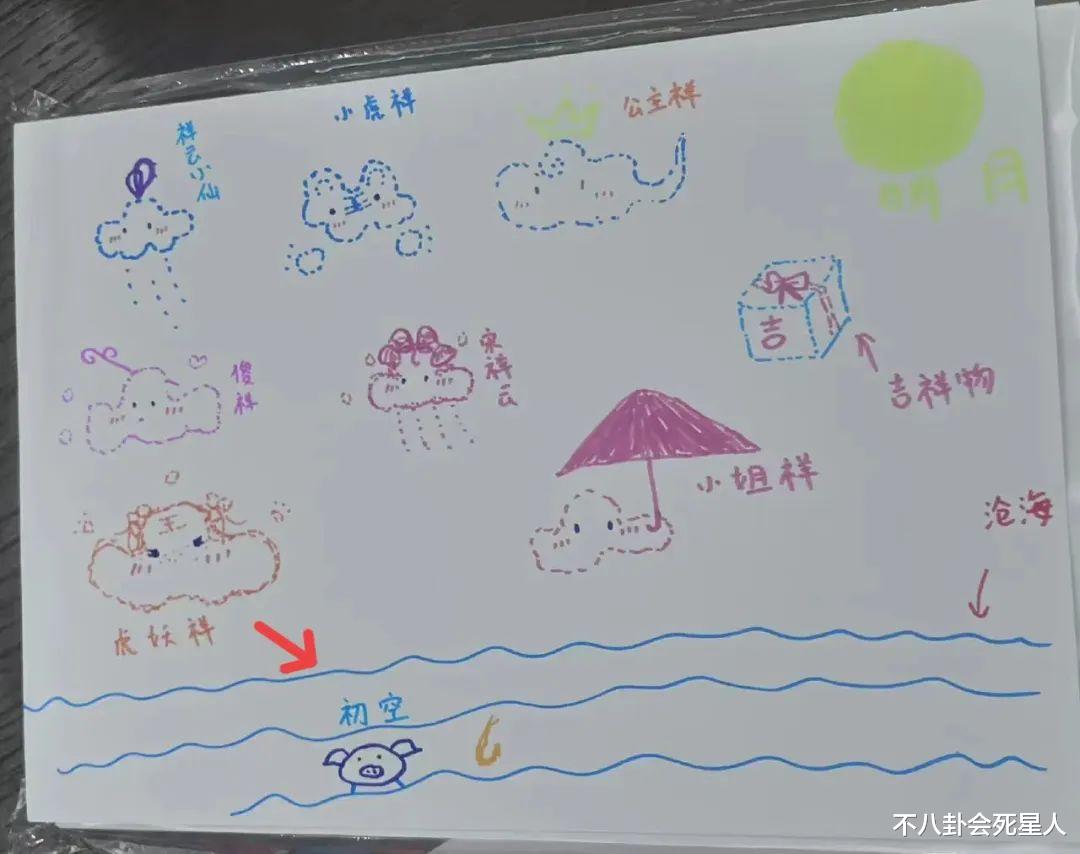 小虎祥
公主祥
祥云小仙
明月
王
傻祥
宋祥云
吉
吉祥物
小姐祥
王
沧海
虎妖祥
初空
不八卦会死星人